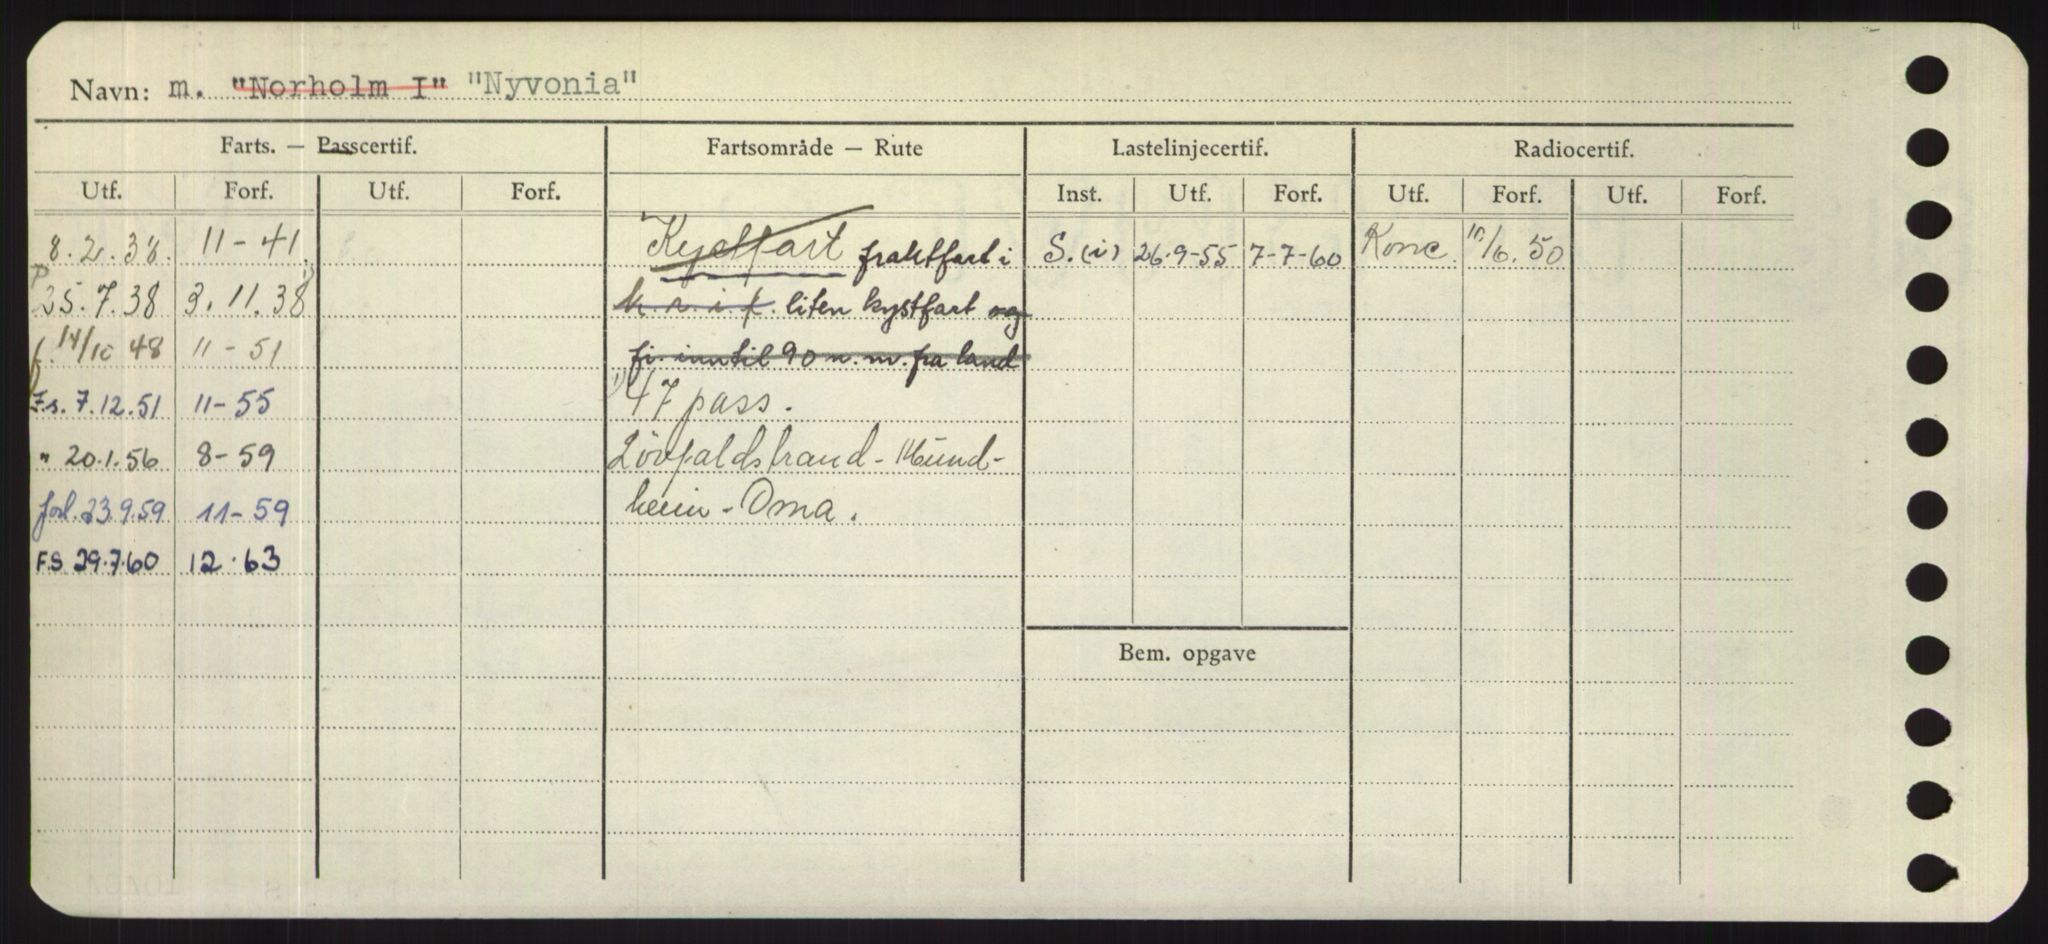 Navn: m. "Norholm I" "Nyvonia"
Farts. — Passcertif. Fartsområde — Rute Lastelinjecertif. Radiocertif.
Utf. Forf. Utf. Forf. Inst. Utf. Forf. Utf. Forf. Utf. Forf.
8.2.38. 11-41. fraktfart i S.(i) 26.9-55 7-7-60 10/6.50
25.7.38 3.11.38 1) k.r.i.f. liten kystfart og
f. 14/10 48 11-51 fi. inntil 90 n.m. fra land
Fs. 7.12.51 11-55 1) 47 pass.
" 20.1.56 8-59 Lövfaldstrand - Mund-
forl. 23.9.59 11-59 heim - Oma.
F.S 29.7.60 12.63
Bem. opgave